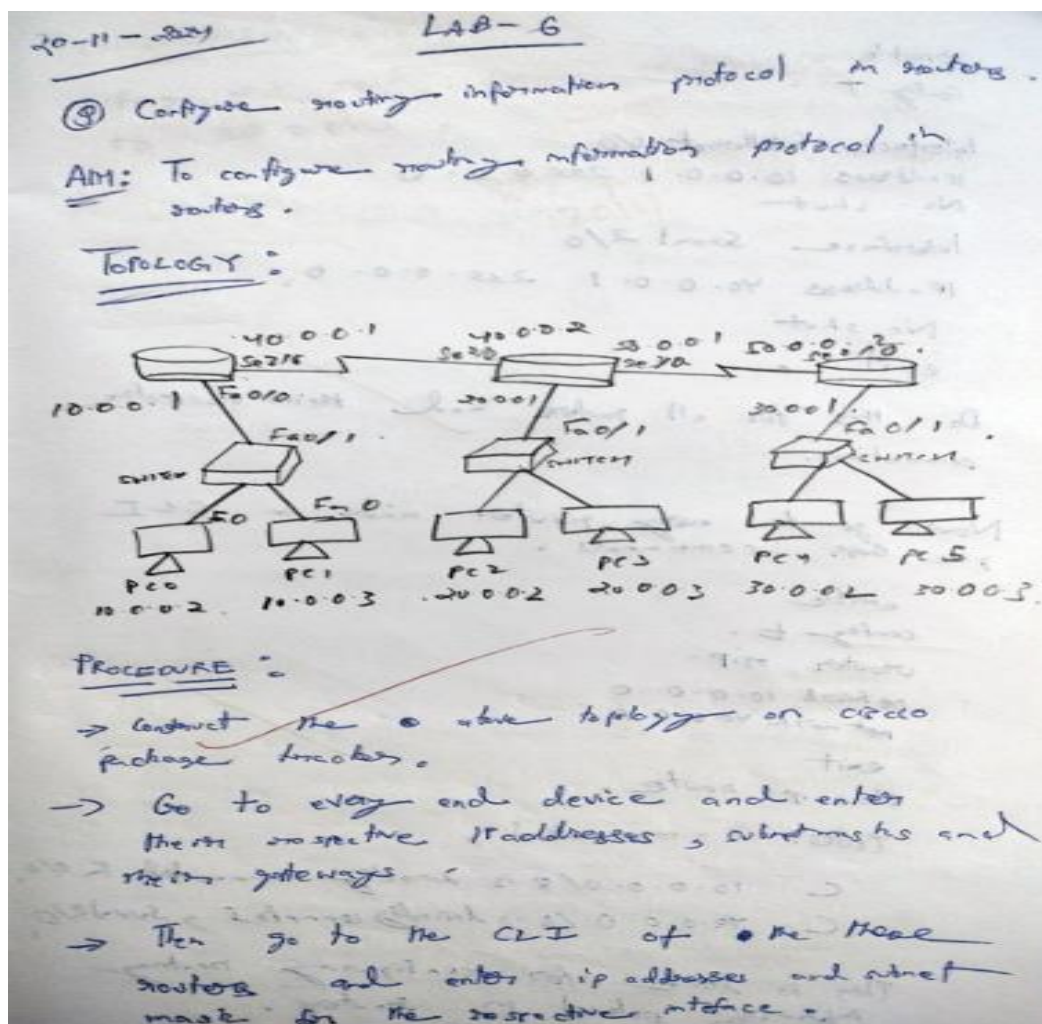 20-11-2024
LAB-6
Q Configure routing information protocol in routers.
AIM: To configure routing information protocol in
routers.
TOPOLOGY:
40.0.0.1 40.0.0.2 50.0.0.1 50.0.0.2
Se2/0 Se2/0 Se3/0
10.0.0.1 Fa0/0 20.0.0.1 30.0.0.1
Fa0/1 Fa0/1 Fa0/1
SWITCH SWITCH SWITCH
Fa0
PC0 PC1 PC2 PC3 PC4 PC5
10.0.0.2 10.0.0.3 20.0.0.2 20.0.0.3 30.0.0.2 30.0.0.3
PROCEDURE:
→ Construct the above topology on cisco
package tracker.
→ Go to every end device and enter
their respective IP addresses, subnet masks and
their gateways.
→ Then go to the CLI of the three
routers and enter ip addresses and subnet
mask for the respective interface.